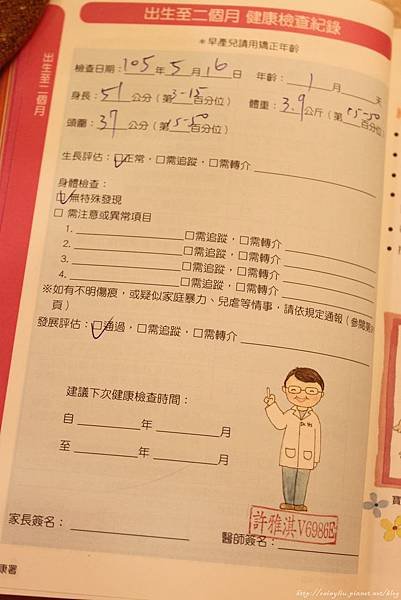 出生至二個月 健康檢查紀錄
出生至二個月
＊早產兒請用矯正年齡
檢查日期：105年5月16日 年齡：1月＿＿天
身長：51公分（第3-15百分位） 體重：3.9公斤（第15-50百分位）
頭圍：37公分（第15-50百分位）
生長評估：☑正常，□需追蹤，□需轉介＿＿＿＿
身體檢查：
☑無特殊發現
□ 需注意或異常項目
1.＿＿＿＿□需追蹤，□需轉介＿＿＿＿
2.＿＿＿＿□需追蹤，□需轉介＿＿＿＿
3.＿＿＿＿□需追蹤，□需轉介＿＿＿＿
4.＿＿＿＿□需追蹤，□需轉介＿＿＿＿
※如有不明傷痕，或疑似家庭暴力、兒虐等情事，請依規定通報（參閱第
頁）
發展評估：☑通過，□需追蹤，□需轉介＿＿＿＿
建議下次健康檢查時間：
自＿＿＿＿年＿＿＿＿月
至＿＿＿＿年＿＿＿＿月
許雅淇V6986E
家長簽名：＿＿＿＿ 醫師簽名：＿＿＿＿
康署
寶
http://rainyliu.pixnet.net/blog